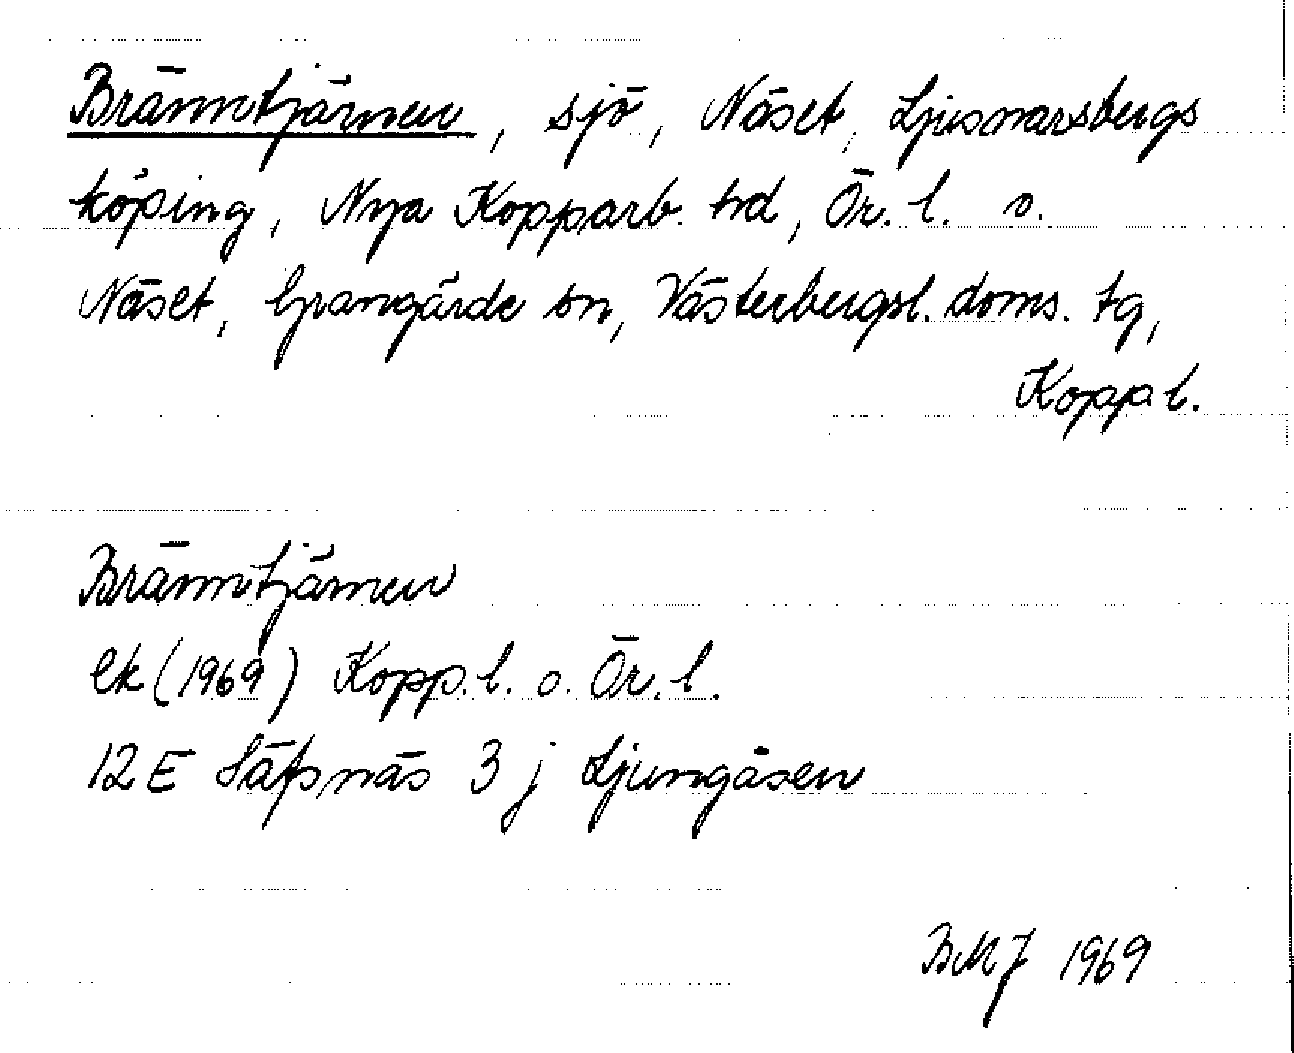 Bränntjärnen, sjö, Näset, Ljusnarsbergs
köping, Nya Kopparb. hd, Ör. l. o.
Näset, Grangärde sn, Västerbergsl. doms. tg,
Kopp. l.
Bränntjärnen
ek (1969) Kopp. l. o. Ör. l.
12E Säfsnäs 3 j Ljungåsen
BMJ 1969